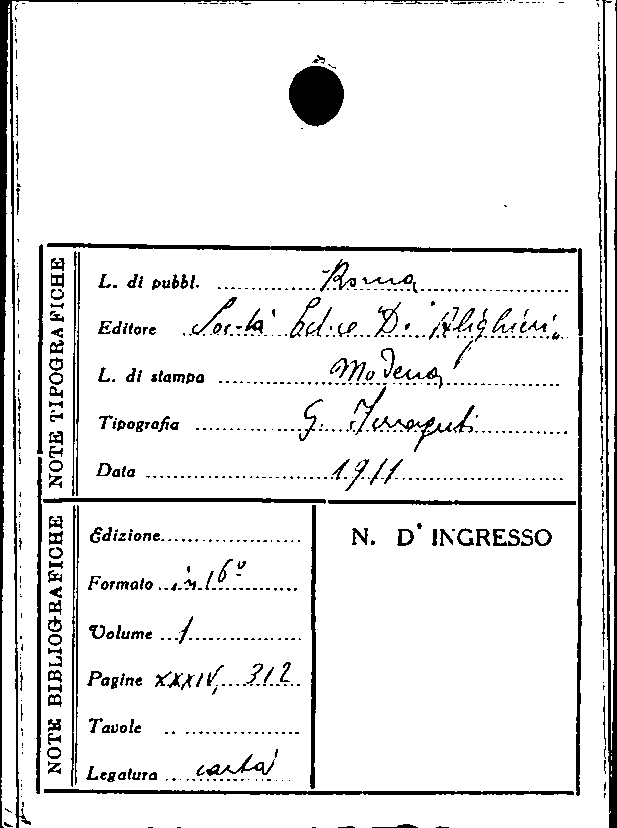 NOTE TIPOGRAFICHE
L. di pubbl. Roma
Editore Soc-tà Ed.ce D. Alighieri
L. di stampa Modena
Tipografia G. Ferraguti
Data 1911
NOTE BIBLIOGRAFICHE
Edizione
Formato in 16º
Volume 1
Pagine XXXIV, 312
Tavole
Legatura carta
N. D' INGRESSO